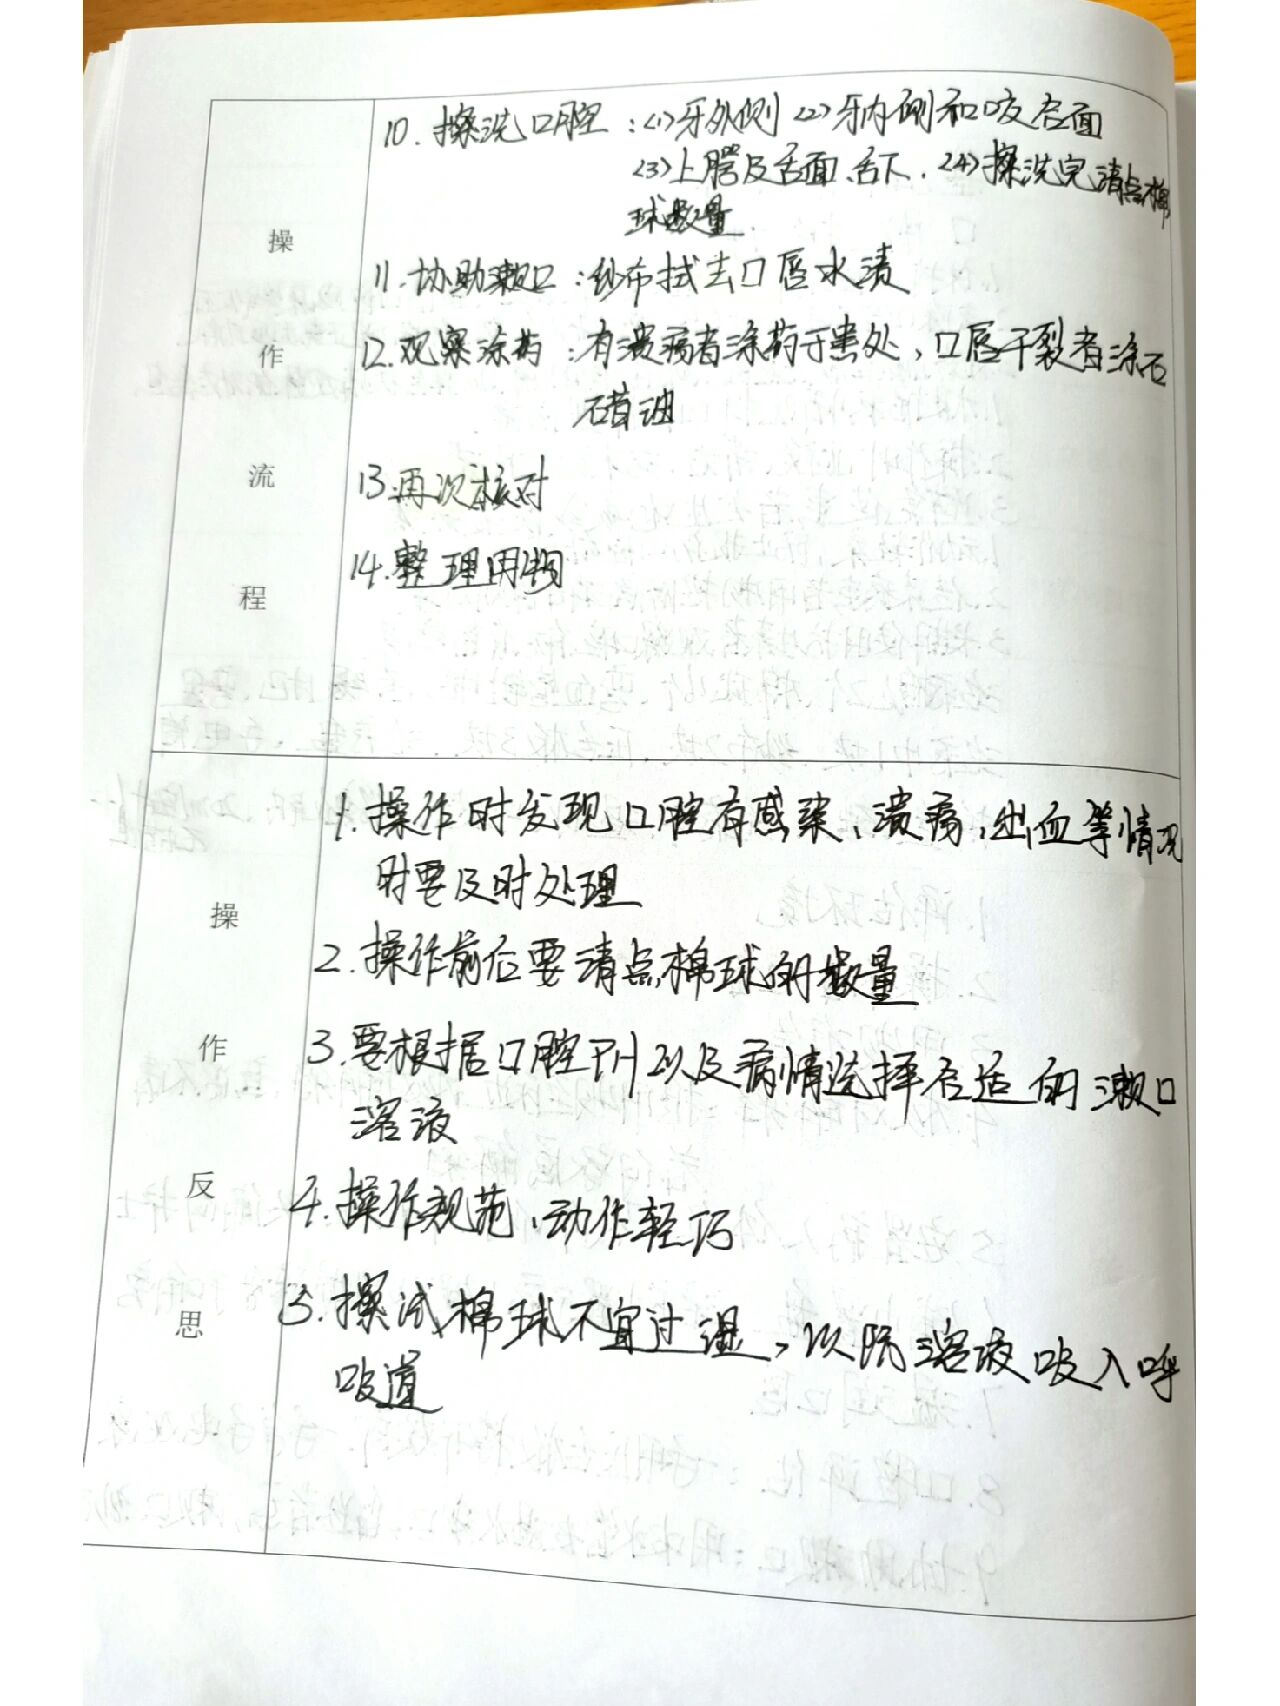 操作流程
10. 擦洗口腔：(1)牙外侧 (2)牙内侧和咬合面
(3)上腭及舌面、舌下. (4)擦洗完清点棉
球数量
11. 协助漱口：纱布拭去口唇水渍
12. 观察涂药：有溃疡者涂药于患处，口唇干裂者涂石
石蜡油
13. 再次核对
14. 整理用物
操作反思
1. 操作时发现口腔有感染、溃疡、出血等情况
时要及时处理
2. 操作前后要清点棉球的数量
3. 要根据口腔PH以及病情选择合适的漱口
溶液
4. 操作规范、动作轻巧
5. 擦拭棉球不宜过湿，以防溶液吸入呼
吸道